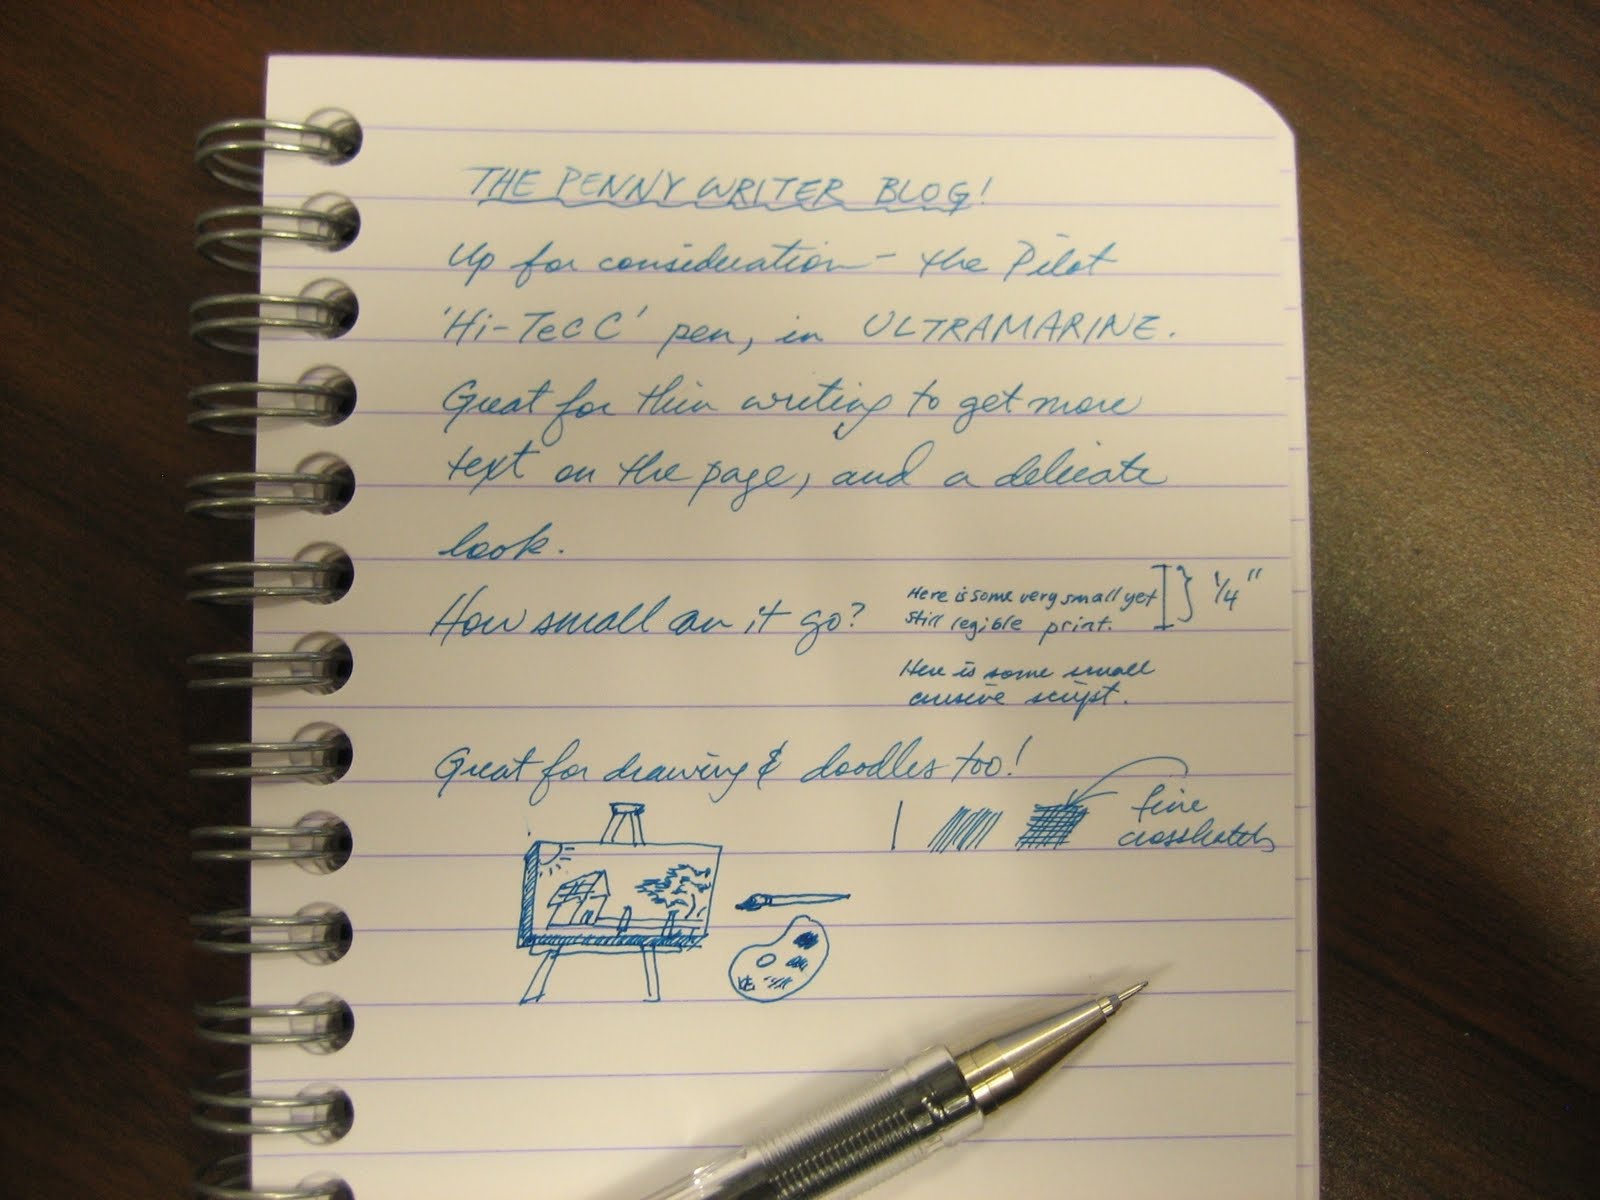 THE PENNY WRITER BLOG!
Up for consideration - the Pilot
'Hi-Tec C' pen, in ULTRAMARINE.
Great for thin writing to get more
text on the page, and a delicate
look.
How small can it go?
Here is some very small yet
still legible print.
1/4"
Here is some small
cursive script.
Great for drawing & doodles too!
fine
crosshatch